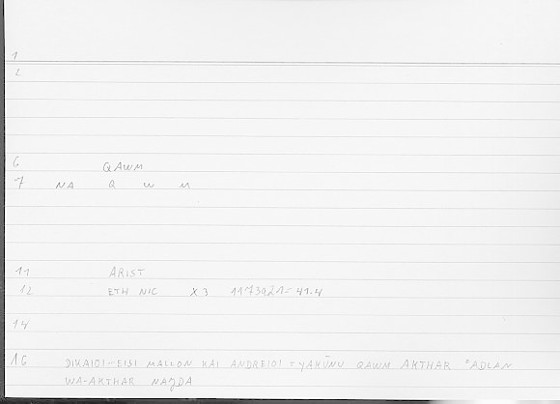 1
2
6 QAWM
7 NA Q W M
11 ARIST
12 ETH NIC X 3 1173a21= 41.4
14
16 DIKAIOI-EISI MALLON KAI ANDREIOI = YAKŪNU QAWM AKTHAR ʿADLAN
WA-AKTHAR NAJDA